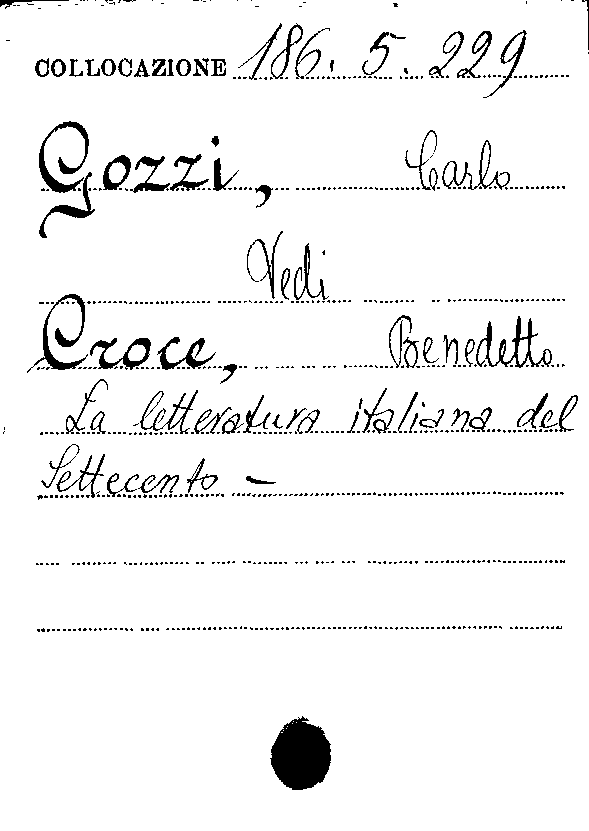 COLLOCAZIONE 186. 5. 229
Gozzi, Carlo
Vedi
Croce, Benedetto
La letteratura italiana del
Settecento —